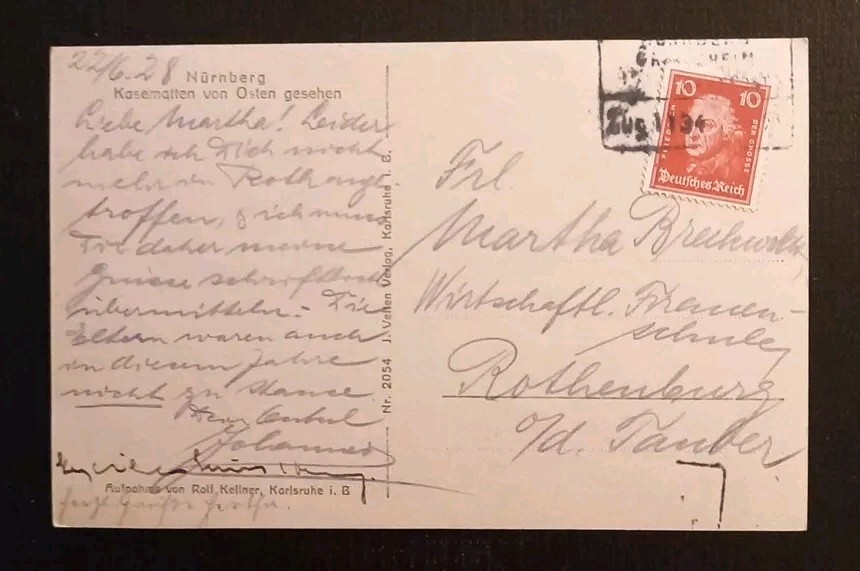 22/6.28
Nürnberg
Kasematten von Osten gesehen
Liebe Martha! Leider
habe ich Dich nicht
mehr in Rothenbg.
troffen, & ich muss
Dir daher meine
Grüsse schriftlich
übermitteln. - Die
Eltern waren auch
in diesem Jahre
nicht zu Hause.
Dein Onkel
Johannes
Aufnahme von Rolf Kellner, Karlsruhe i. B
herzl. Grüße Hertha.
Nr. 2054 J. Velten Verlag, Karlsruhe i. B.
Zug 1134
10 10
FRIEDRICH DER GROSSE
Deutsches Reich
Frl.
Martha
Wirtschaftl. Frauen-
schule
Rothenburg
o/d. Tauber